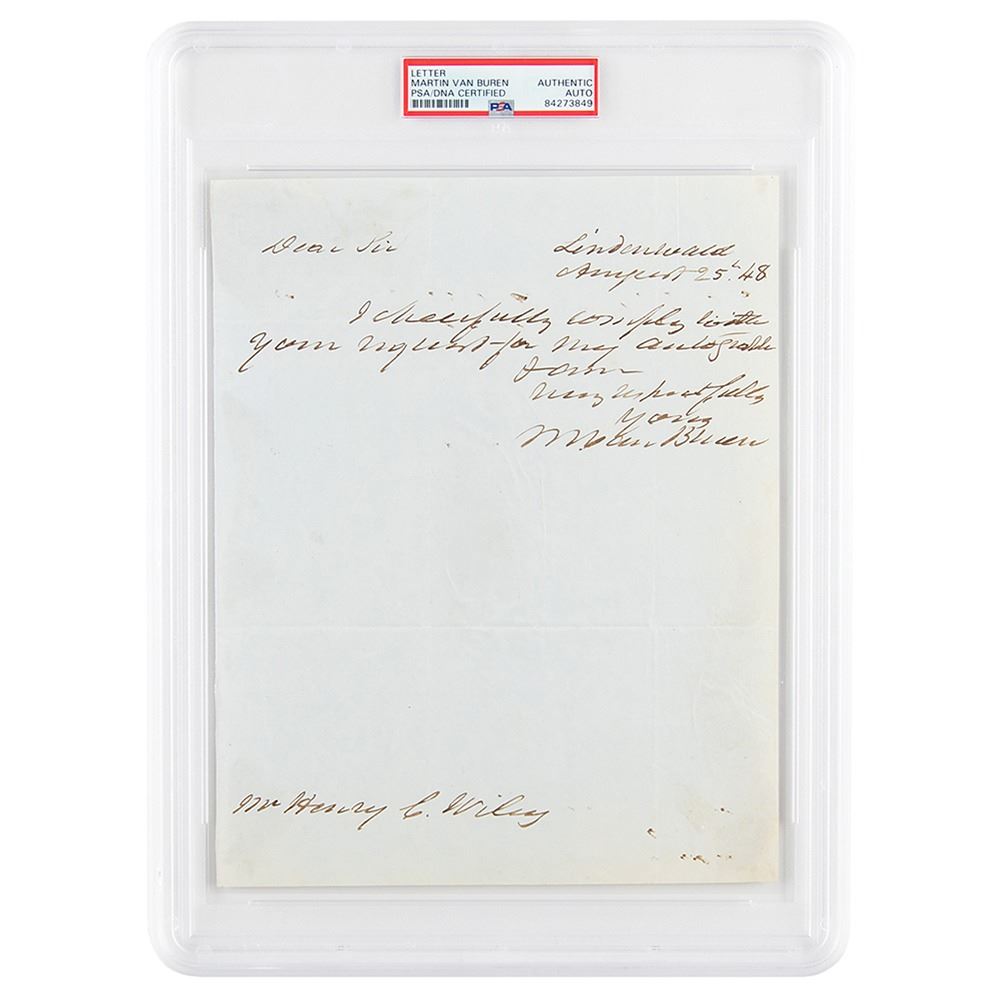 LETTER
MARTIN VAN BUREN
PSA/DNA CERTIFIED
AUTHENTIC
AUTO
84273849
PSA
Dear Sir
Lindenwald
August 25th. 48
I cheerfully comply with
your request for my autograph
& am
very respectfully
yours
M Van Buren
Mr Henry C. Wiley